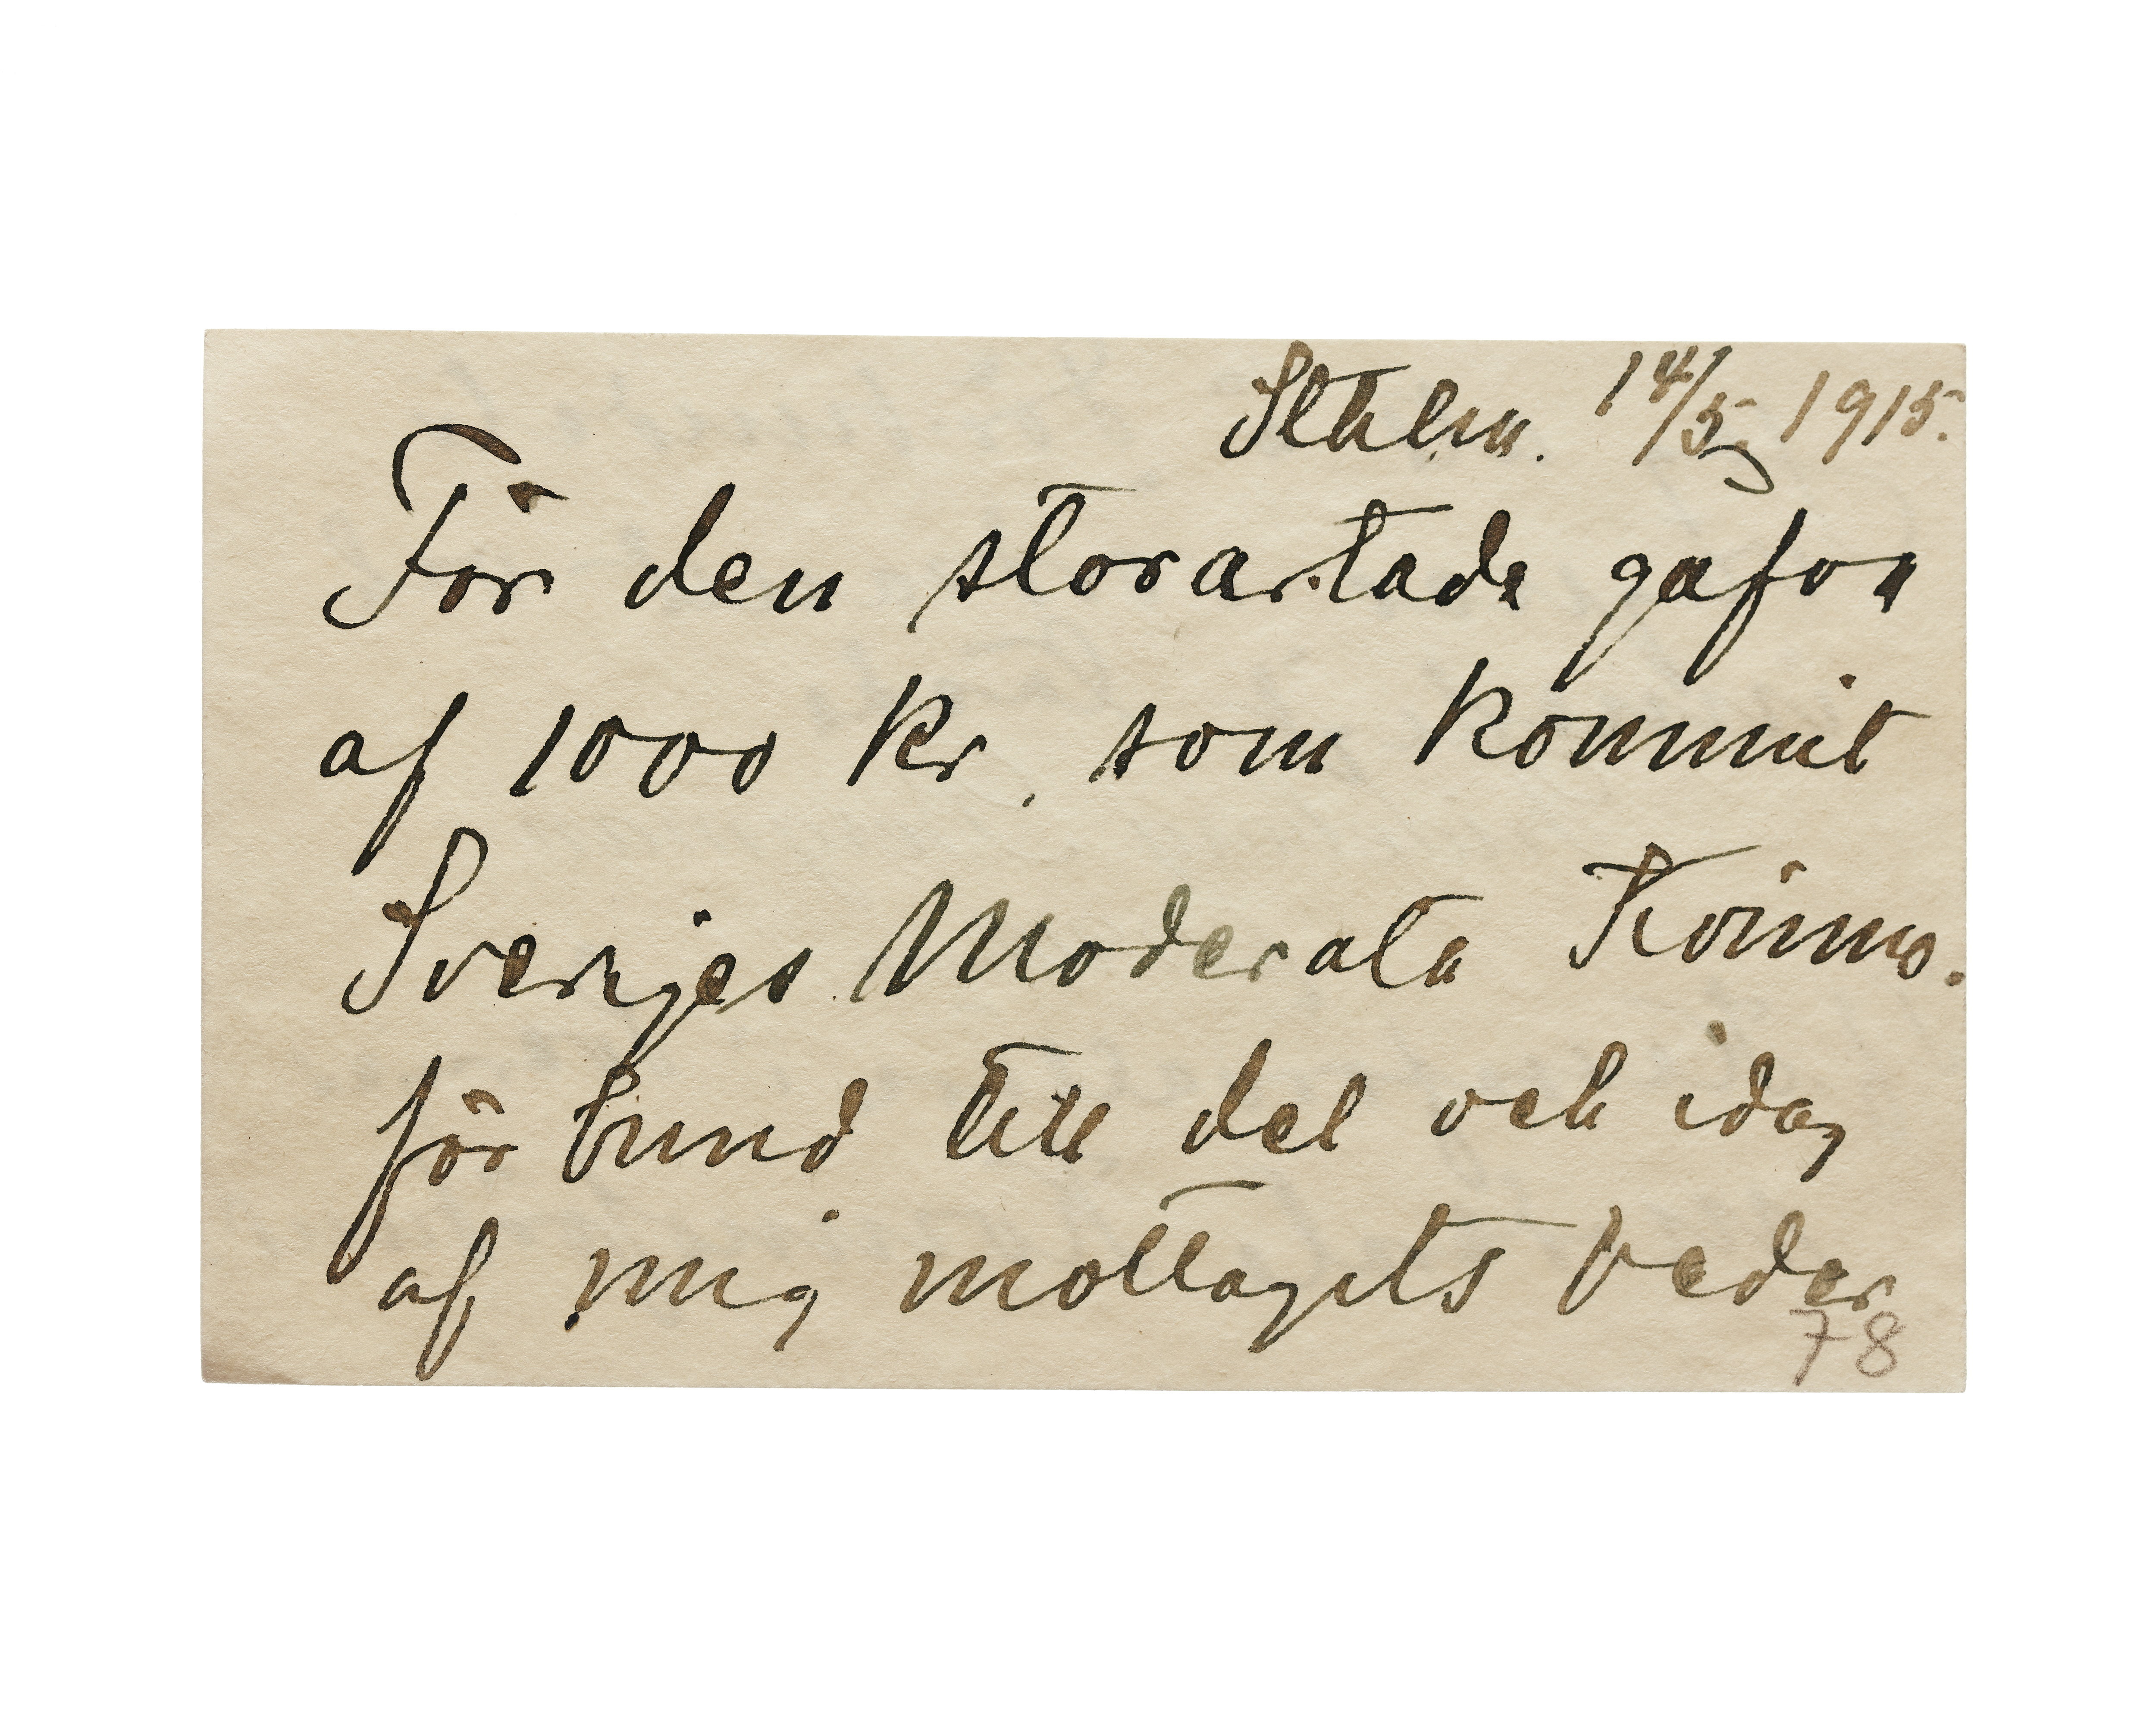 Sthlm. 14/5 1915.
För den storartade gåfvan
af 1000 kr. som kommit
Sveriges Moderata Kvinno.
förbund till del och idag
af mig mottagits beder
78